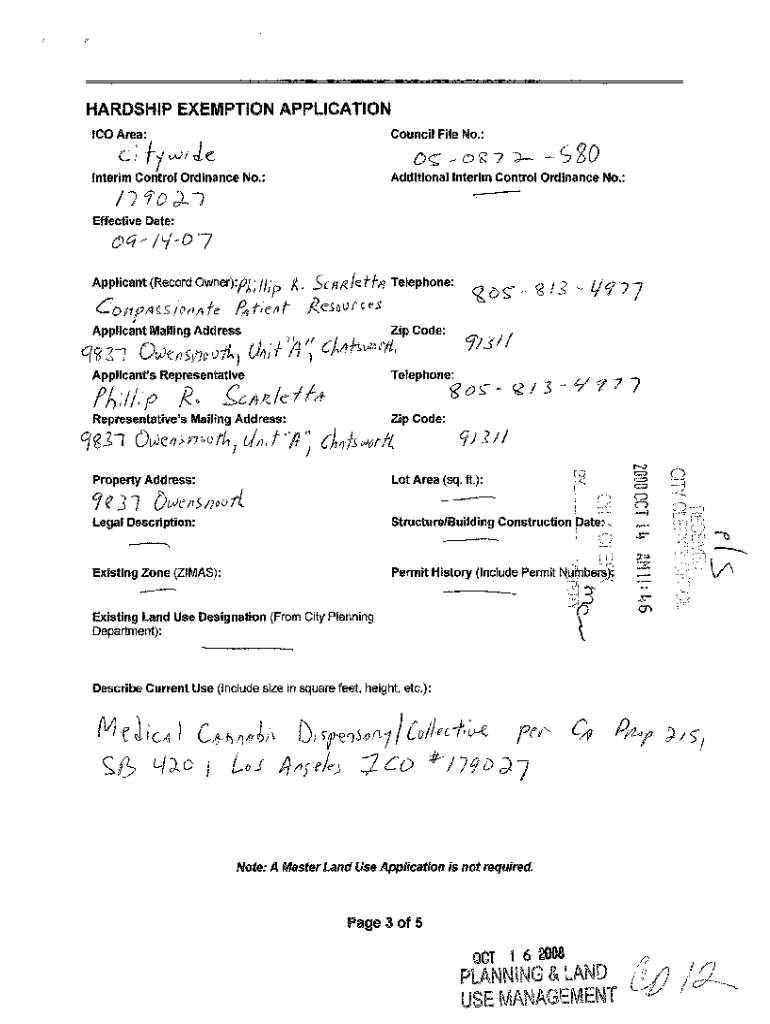 HARDSHIP EXEMPTION APPLICATION
ICO Area: Council File No.:
Citywide 05-0872-S80
Interim Control Ordinance No.: Additional Interim Control Ordinance No.:
179027
Effective Date:
09-14-07
Applicant (Record Owner): Phillip R. Scarletta Telephone: 805-813-4977
Compassionate Patient Resources
Applicant Mailing Address Zip Code:
9837 Owensmouth, Unit "A", Chatsworth, 91311
Applicant's Representative Telephone:
Phillip R. Scarletta 805-813-4977
Representative's Mailing Address: Zip Code:
9837 Owensmouth, Unit "A", Chatsworth 91311
Property Address: Lot Area (sq. ft.):
9837 Owensmouth
Legal Description: Structure/Building Construction Date:
Existing Zone (ZIMAS): Permit History (Include Permit Numbers):
Existing Land Use Designation (From City Planning
Department):
RECEIVED
CITY CLERK'S OFFICE
2008 OCT 14 AM 11:46
CITY CLERK
BY
Describe Current Use (include size in square feet, height, etc.):
Medical Cannabis Dispensary/Collective per CA Prop 215,
SB 420, Los Angeles ICO #179027
Note: A Master Land Use Application is not required.
Page 3 of 5
OCT 16 2008
PLANNING & LAND
USE MANAGEMENT
CD 12